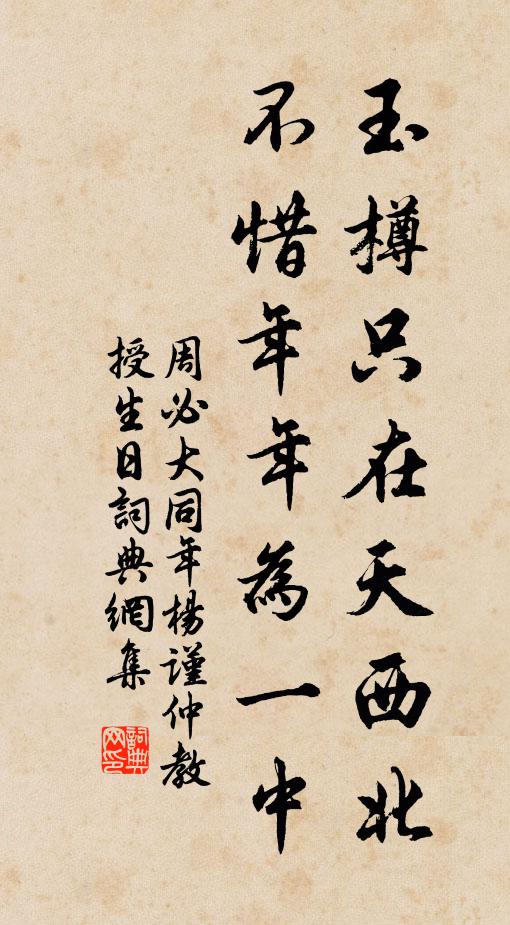 玉樽只在天西北
不惜年年為一中
周必大同年楊謹仲教
授生日詞典網集
詞典网印